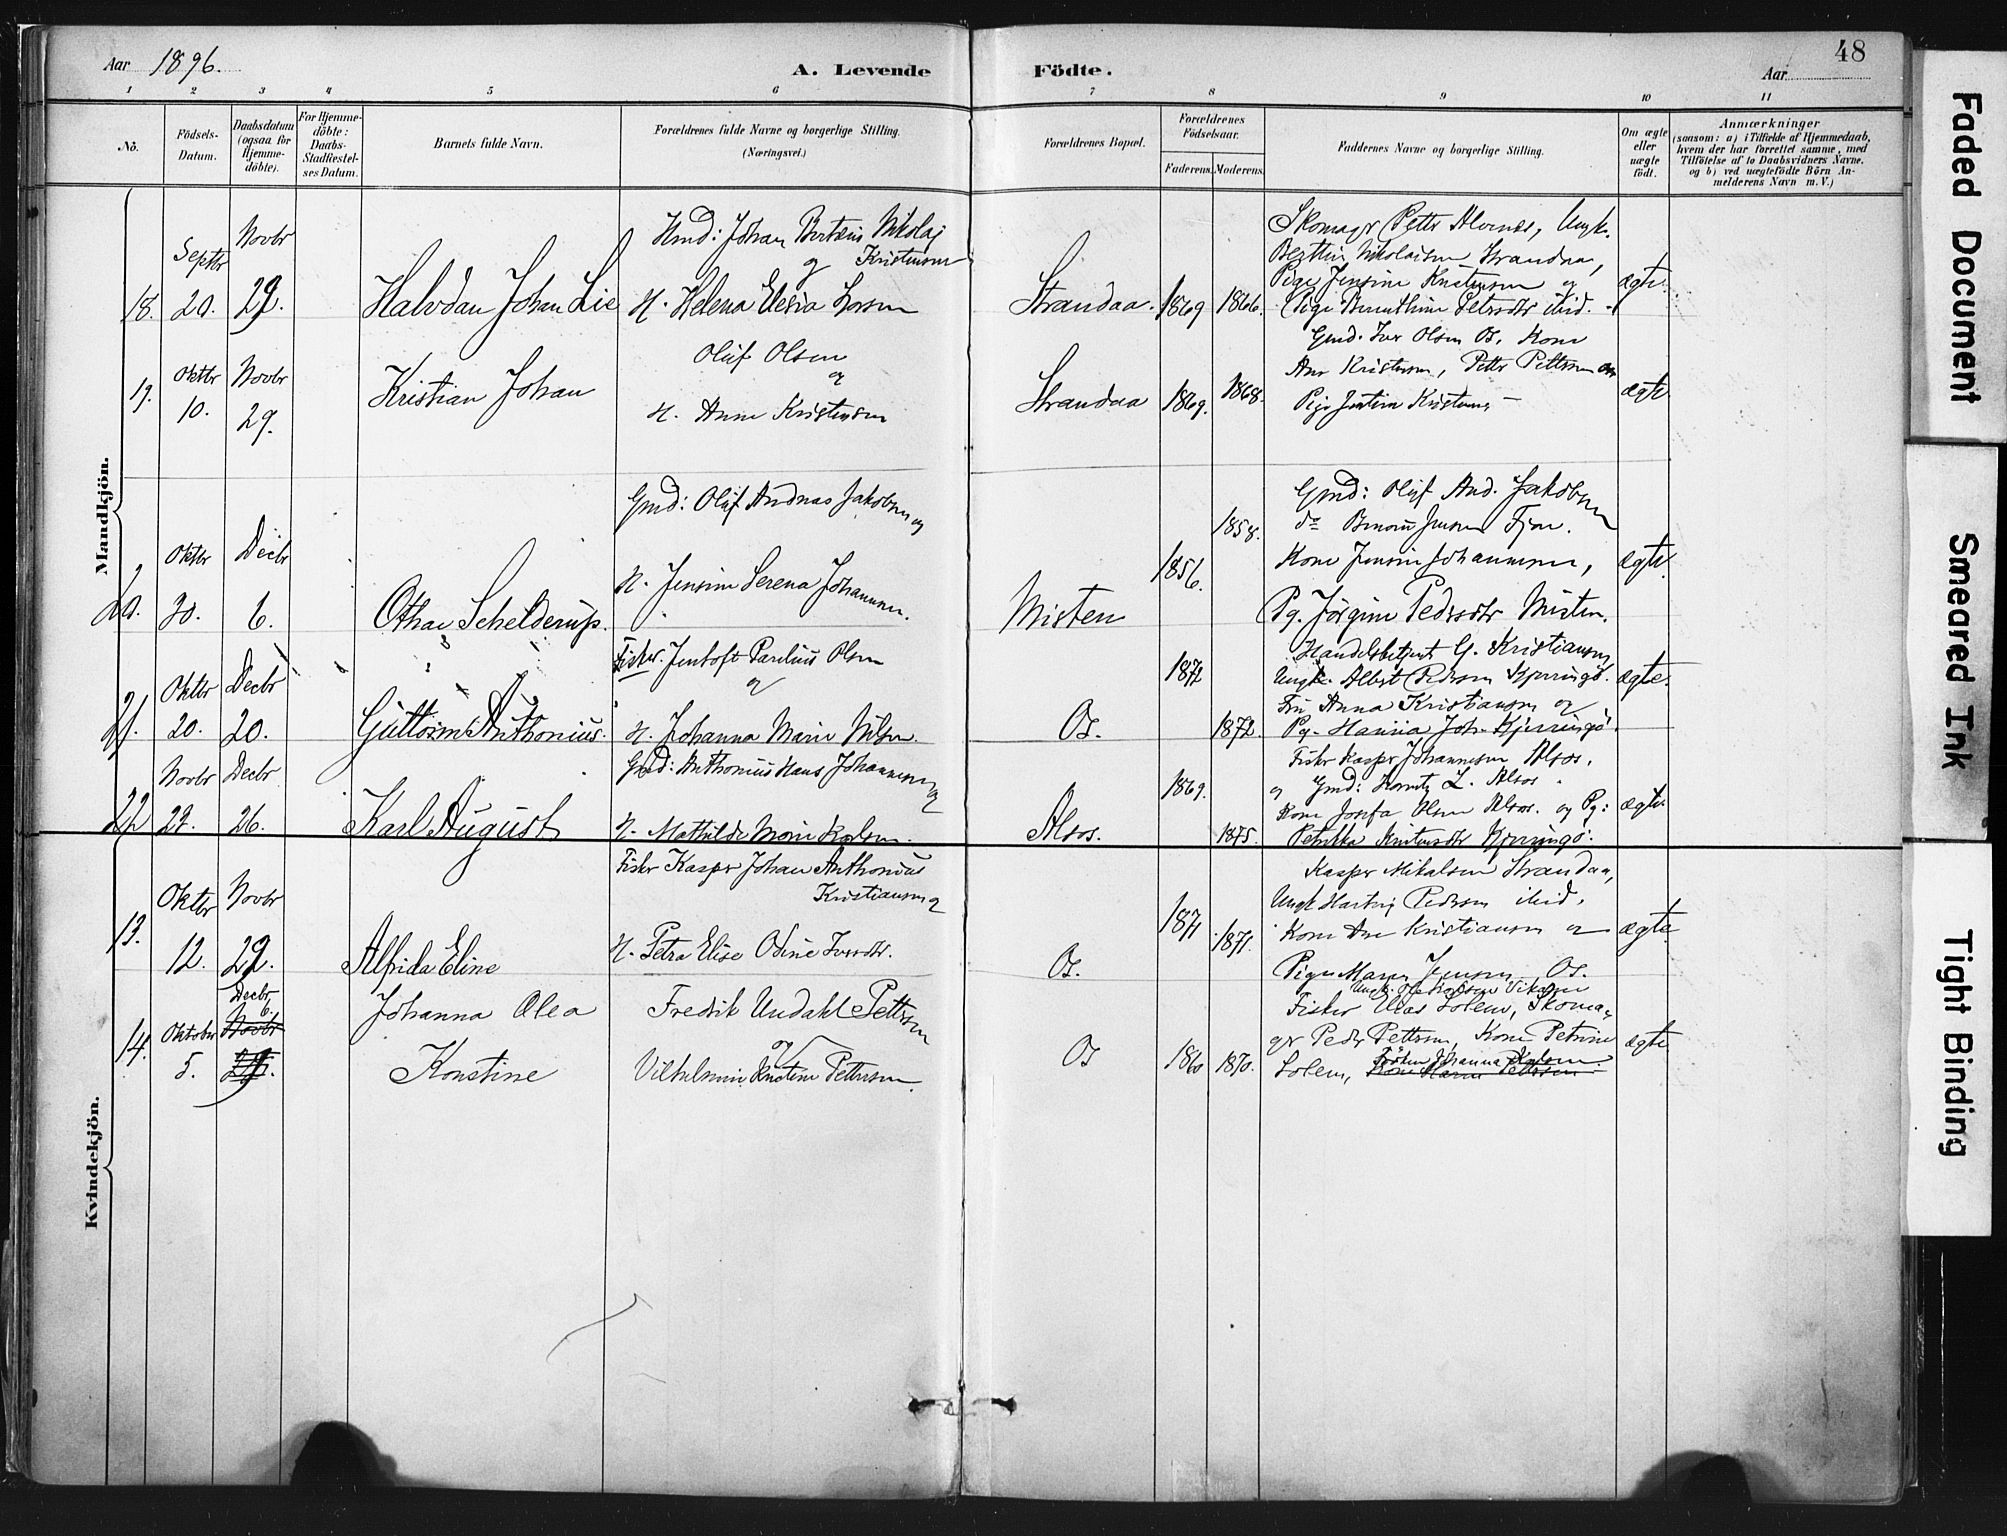 Aar 1896.
A. Levende
Födte.
Aar
48
1 2 3 4 5 6 7 8 9 10 11
No.
Födsels-Datum.
Daabsdatum (ogsaa for Hjemmedöbte).
For Hjemmedöbte: Daabs-Stadfæstelses Datum.
Barnets fulde Navn.
Forældrenes fulde Navne og borgerlige Stilling.
(Næringsvei.)
Forældrenes Bopæl.
Forældrenes Födselsaar.
Faderens. Moderens.
Faddernes Navne og borgerlige Stilling.
Om ægte eller uægte födt.
Anmærkninger
(saasom: a) i Tilfælde af Hjemmedaab,
hvem der har forrettet samme, med
Tilföielse af to Daabsvidners Navne.
og b) ved uægtefödte Börn An-
melderens Navn m. V.)
Mandkjön.
18.
Septbr 20.
Novbr 29.
Halvdan Johan Lie
Johan Nikolaj
Kristensen
og
H. Helena
Strandaa.
1869
1866.
Skomagr Petter Alvenes, Ungk.
Nikolaisen Strandaa,
Pige Jensine Kristensen og
Pige Petersdtr ibid.
ægte.
19.
Oktbr 10.
Novbr 29.
Kristian Johan
Oluf Olsen
og
H. Anne Kristensen
Strandaa
1869.
1868.
Gmd. Iver Olsen Os, Kone
Ane Kristensen, Petter Pettersen
Pige Kristensen
ægte
20.
Oktbr 30.
Decbr 6.
Othar Schelderup.
Gmd: Oluf Andreas Jakobsen og
H. Jensine Serena Johannesen.
Misten
1856.
1858.
Gmd: Oluf And. Jakobsen
do Jensen Fjær.
Kone Jensine Johannesen,
Pg. Jörgine Pedersdtr Misten.
ægte.
21.
Oktbr 20.
Decbr 20.
Guttorm Anthonius.
Fisker. Jentoft Parelius Olsen
og
H. Johanna Marie Nilsen.
Os.
1872
1872.
Handelsbetjent G. Kristiansen
Ungk. Albert Pedersen Kjerringö.
Fru Anna Kristiansen og
Pg. Hanna Joh. Kjerringö.
ægte.
22
Novbr 22.
Decbr 26.
Karl August
Gmd: Anthonius Hans Johannesen og
H. Mathilde Marie Karlsen.
Alsos.
1869.
1875.
Fisker Kasper Johannesen Alsos,
og Gmd: L. Alsos
Kone Josefa Olsen Alsos. og Pg:
Petrikka Kjerringö.
ægte.
Kvindekjön.
13.
Oktbr 12.
Novbr 29.
Alfrida Eline
Fisker Kasper Johan Anthonius
Kristiansen og
H. Petra Elise Odine Iversdtr.
Os.
1871
1871.
Kasper Mikalsen Strandaa,
Ungk Hartvig Pedersen ibid,
Kone Ane Kristiansen og
Pige Maren Jensen, Os.
ægte.
14.
Oktober 5.
Decbr 6.
Novbr 29.
Johanna Olea
Konstine
Fredrik Undahl Pettersen
og
Vilhelmine Kristine Pettersen.
Os
1860
1870.
Fisker Elias Solem, Skoma-
ger Peder Pettersen, Kone Petrine
Solem, Fröken Johanna
ægte.
Faded Document
Smeared Ink
Tight Binding